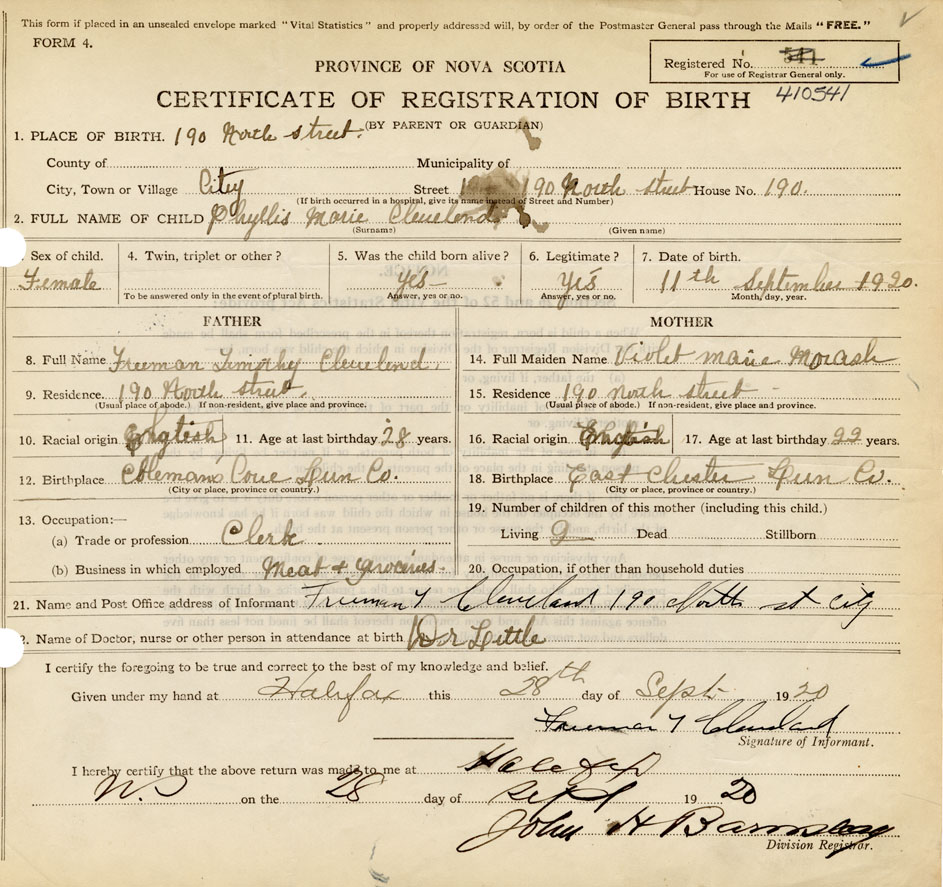 This form if placed in an unsealed envelope marked "Vital Statistics" and properly addressed will, by order of the Postmaster General pass through the Mails "FREE."
FORM 4.
Registered No. 541
For use of Registrar General only.
410541
PROVINCE OF NOVA SCOTIA
CERTIFICATE OF REGISTRATION OF BIRTH
(BY PARENT OR GUARDIAN)
1. PLACE OF BIRTH. 190 North street.
County of Municipality of
City, Town or Village City Street 190 North street House No. 190.
(If birth occurred in a hospital, give its name instead of Street and Number)
2. FULL NAME OF CHILD Phyllis Marie Cleveland
(Surname) (Given name)
Sex of child. 4. Twin, triplet or other? 5. Was the child born alive? 6. Legitimate? 7. Date of birth.
Female Yes Yes 11th September 1920.
To be answered only in the event of plural birth. Answer, yes or no. Answer, yes or no. Month, day, year.
FATHER
8. Full Name Freeman Timothy Cleveland.
9. Residence. 190 North street.
(Usual place of abode.) If non-resident, give place and province.
10. Racial origin English 11. Age at last birthday 28 years.
12. Birthplace Colemans Cove Lun Co.
(City or place, province or country.)
13. Occupation:—
(a) Trade or profession Clerk.
(b) Business in which employed Meat + Groceries.
MOTHER
14. Full Maiden Name Violet Marie Morash
15. Residence 190 North street
(Usual place of abode.) If non-resident, give place and province.
16. Racial origin English 17. Age at last birthday 22 years.
18. Birthplace East Chester Lun Co.
(City or place, province or country.)
19. Number of children of this mother (including this child.)
Living 2 Dead Stillborn
20. Occupation, if other than household duties
21. Name and Post Office address of Informant Freeman T Cleveland 190 North st city
2. Name of Doctor, nurse or other person in attendance at birth Dr Little
I certify the foregoing to be true and correct to the best of my knowledge and belief.
Given under my hand at Halifax this 28th day of Sept. 1920
Freeman T Cleveland
Signature of Informant.
I hereby certify that the above return was made to me at Halifax
N.S on the 28 day of Sept 1920
John H Barnstead
Division Registrar.